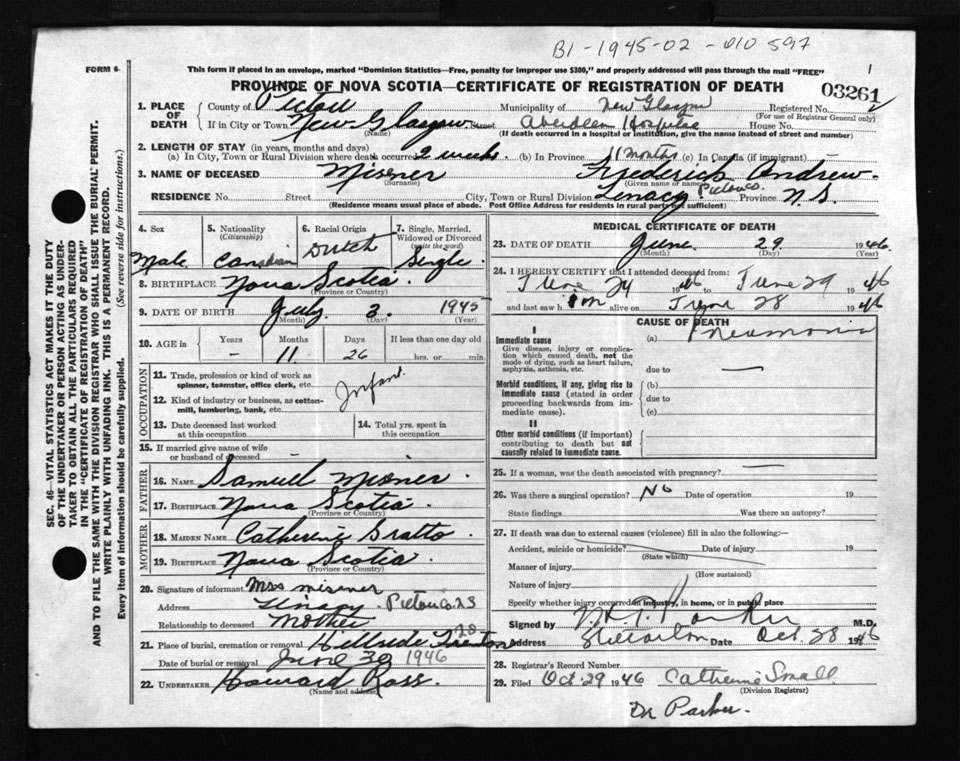 B1-1945-02-010597
1
FORM 6
This form if placed in an envelope, marked "Dominion Statistics—Free, penalty for improper use $300," and properly addressed will pass through the mail "FREE"
PROVINCE OF NOVA SCOTIA—CERTIFICATE OF REGISTRATION OF DEATH
03261
1. PLACE OF DEATH
County of Pictou Municipality of New Glasgow Registered No.
(For use of Registrar General only)
If in City or Town New Glasgow Street Aberdeen Hospital House No.
(Name) (If death occurred in a hospital or institution, give the name instead of street and number)
2. LENGTH OF STAY (in years, months and days)
(a) In City, Town or Rural Division where death occurred 2 weeks. (b) In Province 11 months (c) In Canada (if immigrant)
3. NAME OF DECEASED Misener Frederick Andrew.
(Surname) (Given name or names)
RESIDENCE No. Street City, Town or Rural Division Linacy Pictou Co. Province N.S.
(Residence means usual place of abode. Post Office Address for residents in rural parts not sufficient)
4. Sex
Male
5. Nationality
(Citizenship)
Canadian
6. Racial Origin
Dutch
7. Single, Married, Widowed or Divorced
(write the word)
Single
8. BIRTHPLACE Nova Scotia
(Province or Country)
9. DATE OF BIRTH July 3. 1945
(Month) (Day) (Year)
10. AGE in
Years Months Days If less than one day old
- 11 26 hrs. or min.
OCCUPATION
11. Trade, profession or kind of work as spinner, teamster, office clerk, etc.
12. Kind of industry or business, as cotton-mill, lumbering, bank, etc.
Infant.
13. Date deceased last worked at this occupation
14. Total yrs. spent in this occupation
15. If married give name of wife or husband of deceased
FATHER
16. NAME Samuel Misner
17. BIRTHPLACE Nova Scotia
(Province or Country)
MOTHER
18. MAIDEN NAME Catherine Gratto.
19. BIRTHPLACE Nova Scotia
(Province or Country)
20. Signature of informant Mrs Misener
Address Linacy Pictou Co. NS
Relationship to deceased Mother
21. Place of burial, cremation or removal Hillside Trenton
28
Date of burial or removal June 30 1946
22. UNDERTAKER Howard Ross.
(Name and address)
MEDICAL CERTIFICATE OF DEATH
23. DATE OF DEATH June 29 1946
(Month) (Day) (Year)
24. I HEREBY CERTIFY that I attended deceased from:
June 24 1946 to June 29 1946
and last saw him alive on June 28 1946
CAUSE OF DEATH
I
Immediate cause
Give disease, injury or complication which caused death, not the mode of dying, such as heart failure, asphyxia, asthenia, etc.
(a) Pneumonia
due to —
Morbid conditions, if any, giving rise to immediate cause (stated in order proceeding backwards from immediate cause).
(b)
due to
(c)
II
Other morbid conditions (if important) contributing to death but not causally related to immediate cause.
25. If a woman, was the death associated with pregnancy? —
26. Was there a surgical operation? No Date of operation 19
State findings Was there an autopsy?
27. If death was due to external causes (violence) fill in also the following:—
Accident, suicide or homicide? Date of injury 19
(State which)
Manner of injury
(How sustained)
Nature of injury
Specify whether injury occurred in industry, in home, or in public place
Signed by Parker M.D.
Address Stellarton Date Oct. 28 1946
28. Registrar's Record Number
29. Filed Oct. 29 1946 Catherine Small
(Division Registrar)
Dr Parker.
SEC. 46—VITAL STATISTICS ACT MAKES IT THE DUTY
OF THE UNDERTAKER OR PERSON ACTING AS UNDER-
TAKER TO OBTAIN ALL THE PARTICULARS REQUIRED
IN THE "CERTIFICATE OF REGISTRATION OF DEATH"
AND TO FILE THE SAME WITH THE DIVISION REGISTRAR WHO SHALL ISSUE THE BURIAL PERMIT.
WRITE PLAINLY WITH UNFADING INK. THIS IS A PERMANENT RECORD.
Every item of information should be carefully supplied. (See reverse side for instructions.)